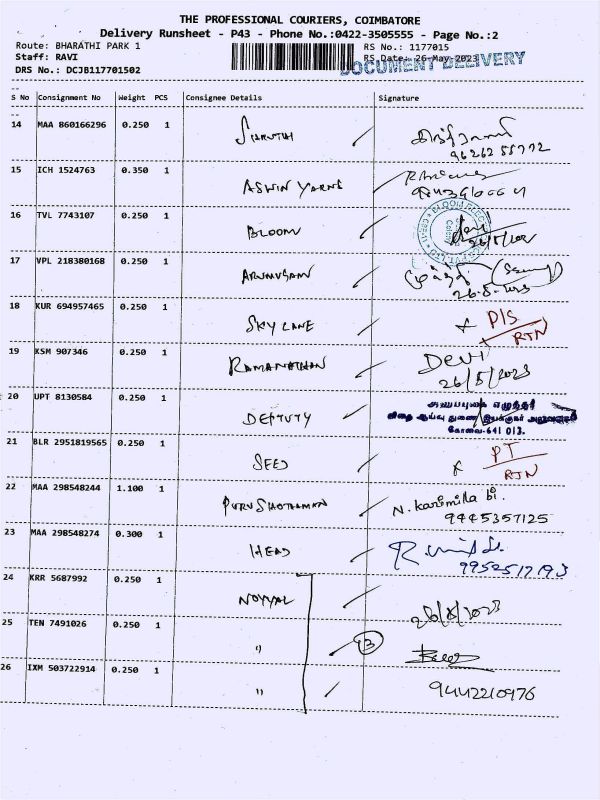 THE PROFESSIONAL COURIERS, COIMBATORE
Delivery Runsheet - P43 - Phone No.:0422-3505555 - Page No.:2
Route: BHARATHI PARK 1 RS No.: 1177015
Staff: RAVI RS Date: 26-May-2023
DOCUMENT DELIVERY
DRS No.: DCJB117701502
S No Consignment No Weight PCS Consignee Details Signature
14 MAA 860166296 0.250 1 SHRUTHI
15 ICH 1524763 0.350 1 ASWIN YARNS
16 TVL 7743107 0.250 1 BLOOM
26/5/2023
17 VPL 218380168 0.250 1 ARUMUGAM
26-5-2023
18 KUR 694957465 0.250 1 SKY LANE x D/S
RTN
19 KSM 907346 0.250 1 RAMANATHAN Devi
26/5/2023
20 UPT 8130584 0.250 1 DEPTUTY
கோவை-641 013.
21 BLR 2951819565 0.250 1 SEED x PT
RTN
22 MAA 298548244 1.100 1 PURUSHOTHAMAN N. karimilla bi.
9445357125
23 MAA 298548274 0.300 1 HEAD
24 KRR 5687992 0.250 1 NOYYAL
26/5/2023
25 TEN 7491026 0.250 1 " 3
26 IXM 503722914 0.250 1 " 9442210976